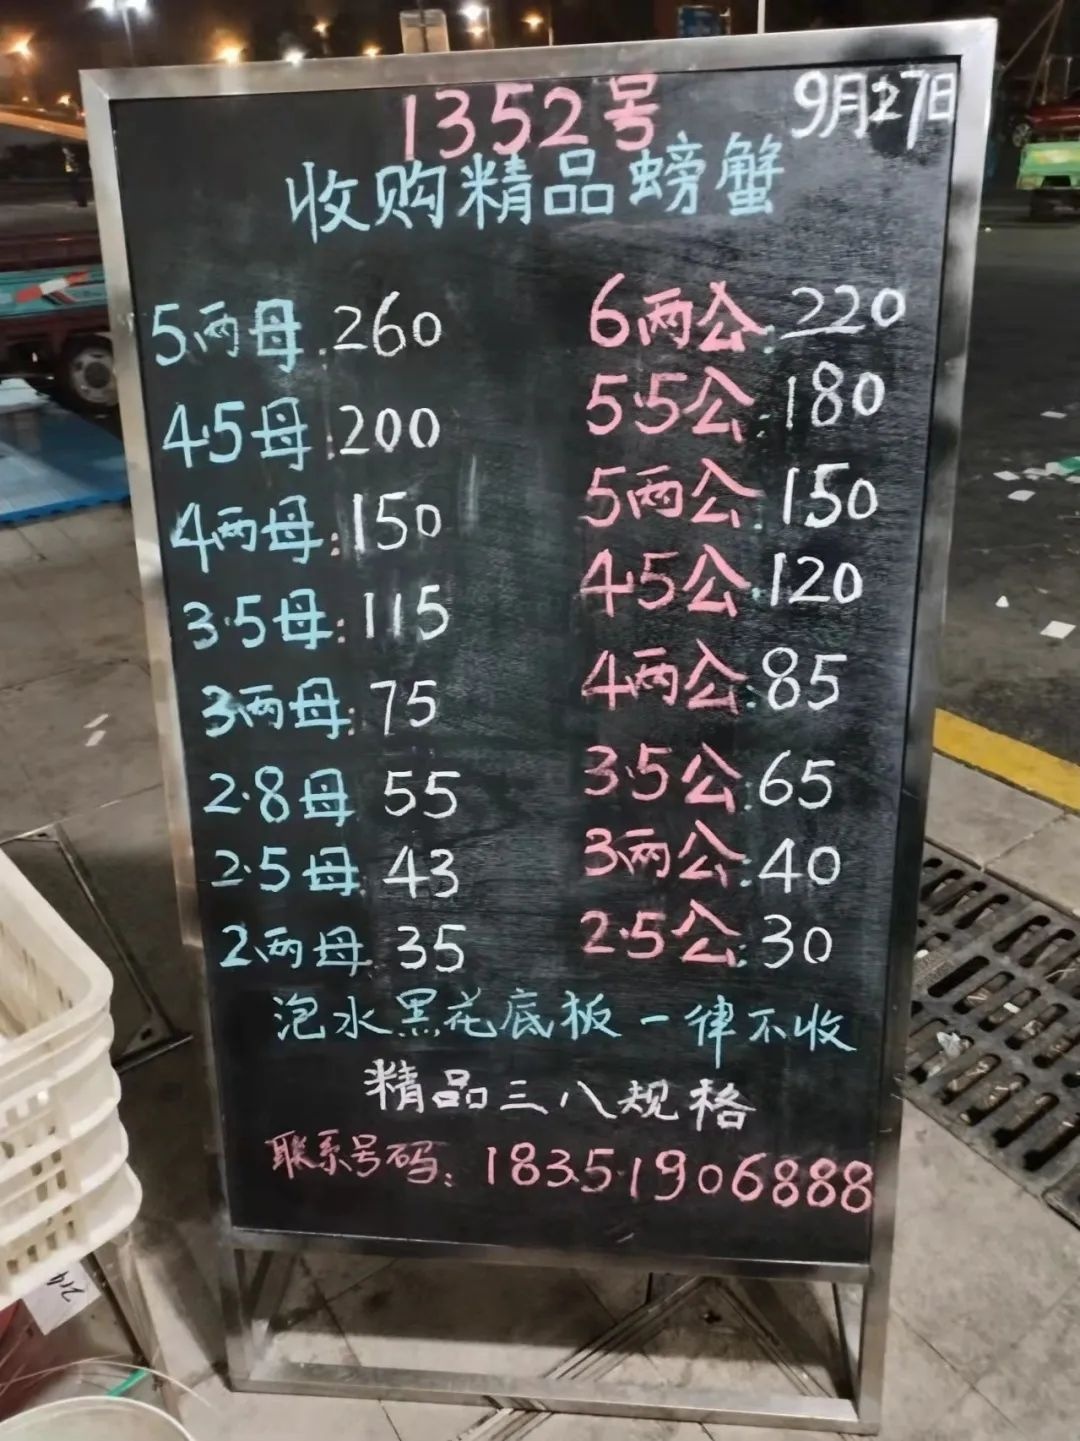 1352号 9月27日
收购精品螃蟹
5两母:260 6两公:220
4.5母:200 5.5公:180
4两母:150 5两公:150
3.5母:115 4.5公:120
3两母:75 4两公:85
2.8母 55 3.5公:65
2.5母 43 3两公:40
2两母 35 2.5公:30
泡水黑花底板一律不收
精品三八规格
联系号码:18351906888